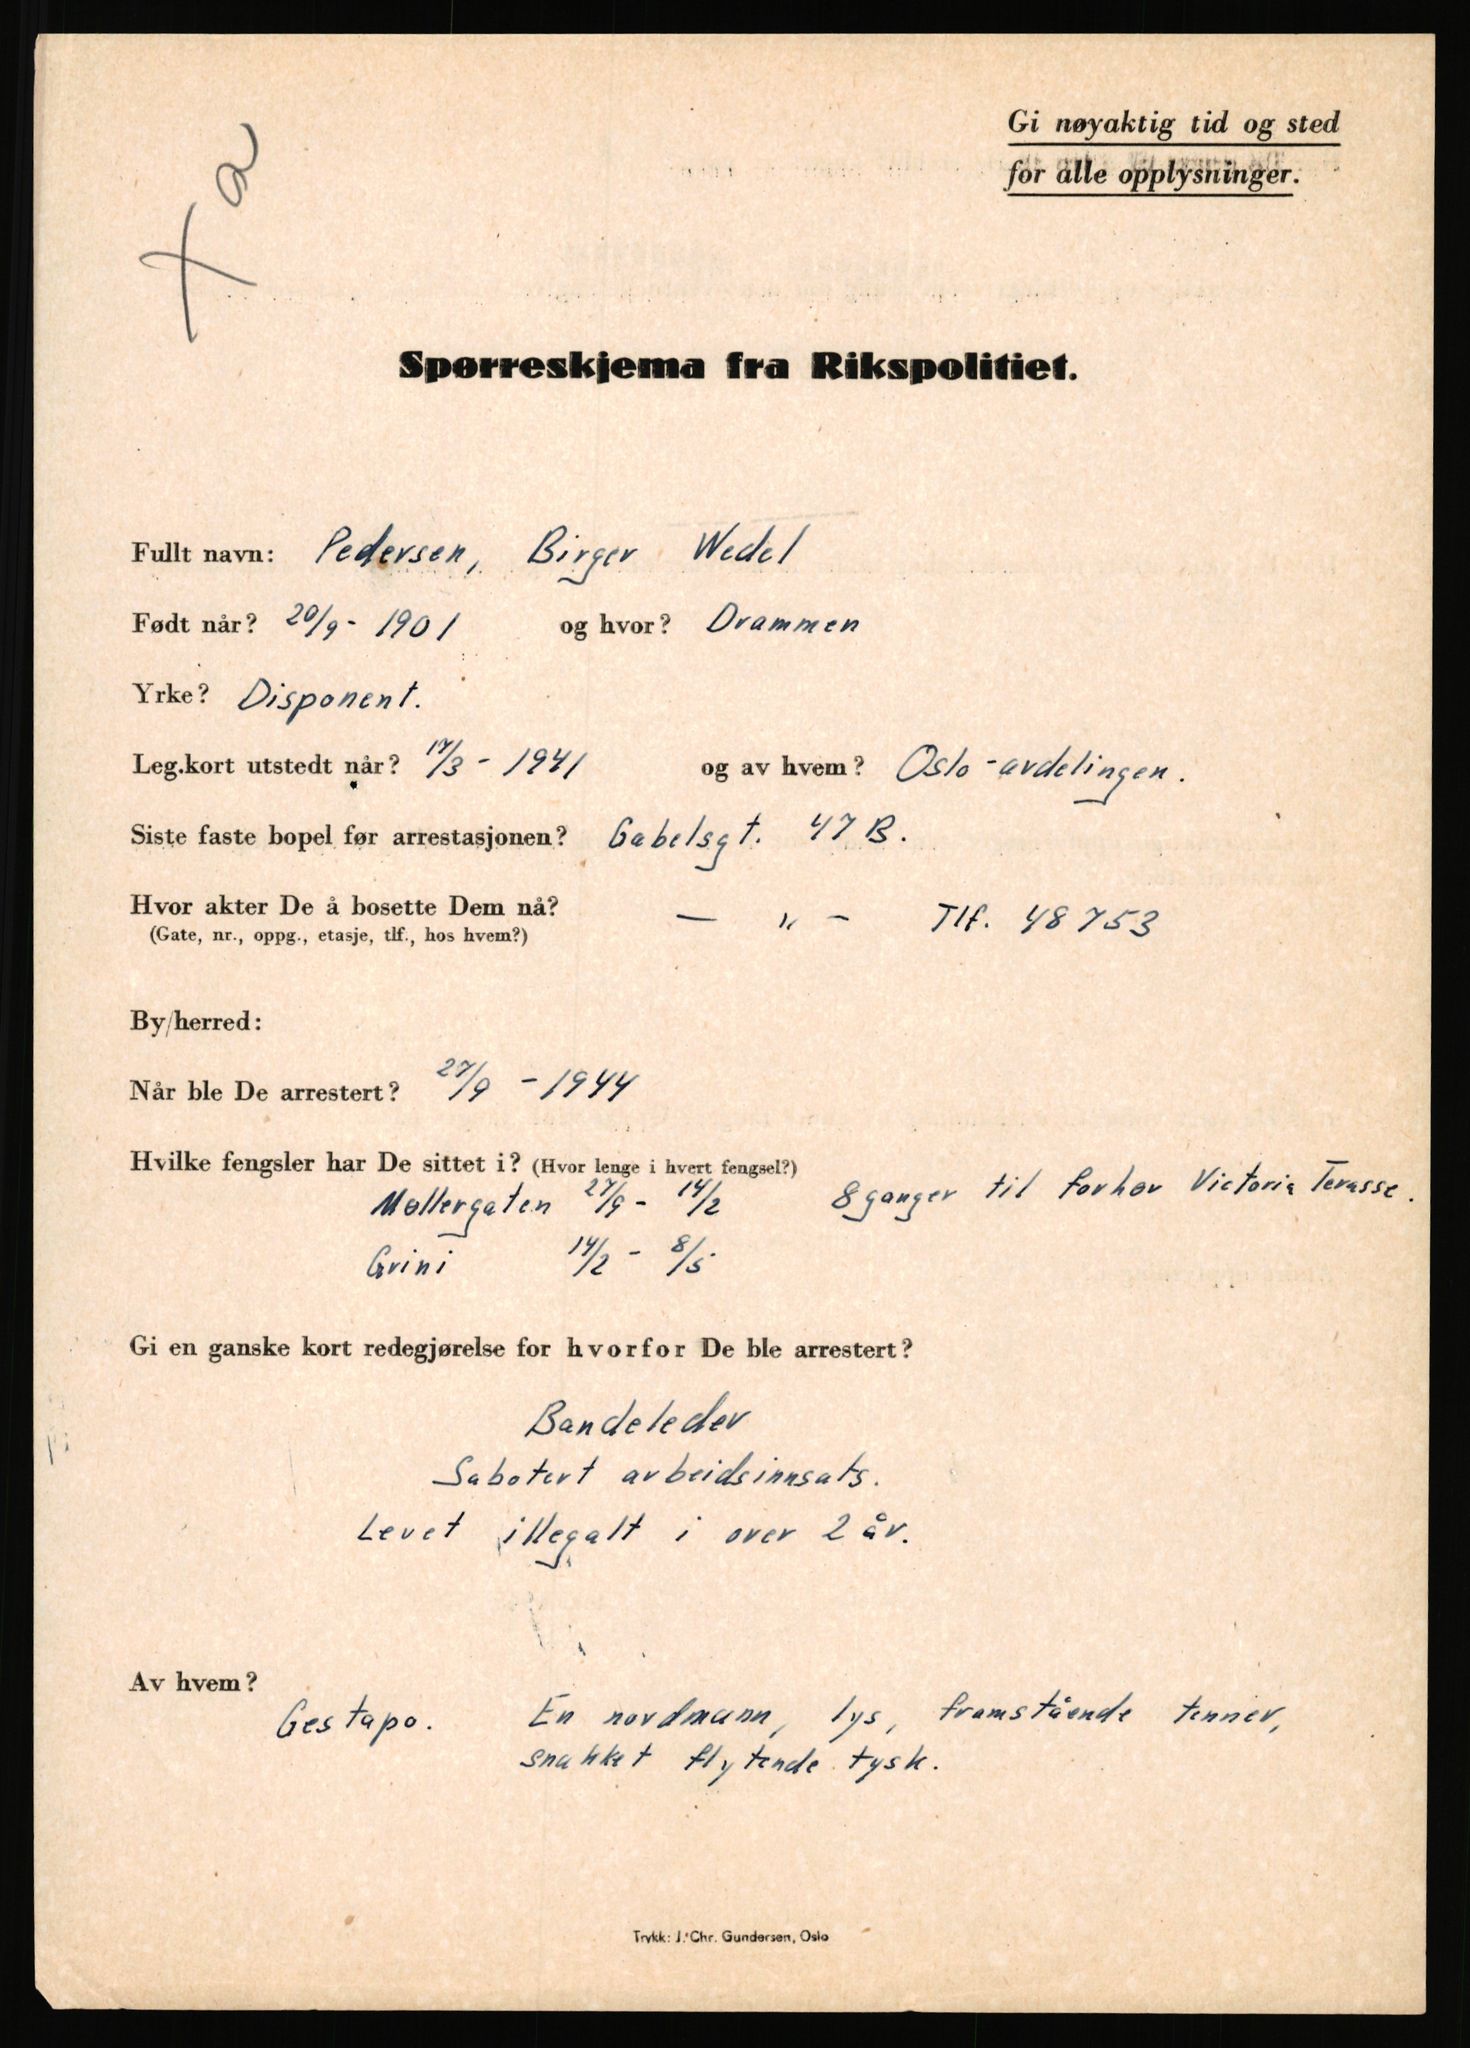 Gi nøyaktig tid og sted
for alle opplysninger.
a
Spørreskjema fra Rikspolitiet.
Fullt navn: Pedersen, Birger Wedel
Født når? 20/9 - 1901 og hvor? Drammen
Yrke? Disponent.
Leg.kort utstedt når? 17/3 - 1941 og av hvem? Oslo-avdelingen.
Siste faste bopel før arrestasjonen? Gabelsgt. 47 B.
Hvor akter De å bosette Dem nå? — " — Tlf. 48753
(Gate, nr., oppg., etasje, tlf., hos hvem?)
By/herred:
Når ble De arrestert? 27/9 - 1944
Hvilke fengsler har De sittet i? (Hvor lenge i hvert fengsel?)
Møllergaten 27/9 - 14/2 8 ganger til forhør Victoria Terasse.
Grini 14/2 - 8/5
Gi en ganske kort redegjørelse for hvorfor De ble arrestert?
Bandeleder
Sabotert arbeidsinnsats.
Levet illegalt i over 2 år.
Av hvem?
Gestapo. En nordmann, lys, framstående tenner,
snakket flytende tysk.
Trykk: J. Chr. Gundersen, Oslo